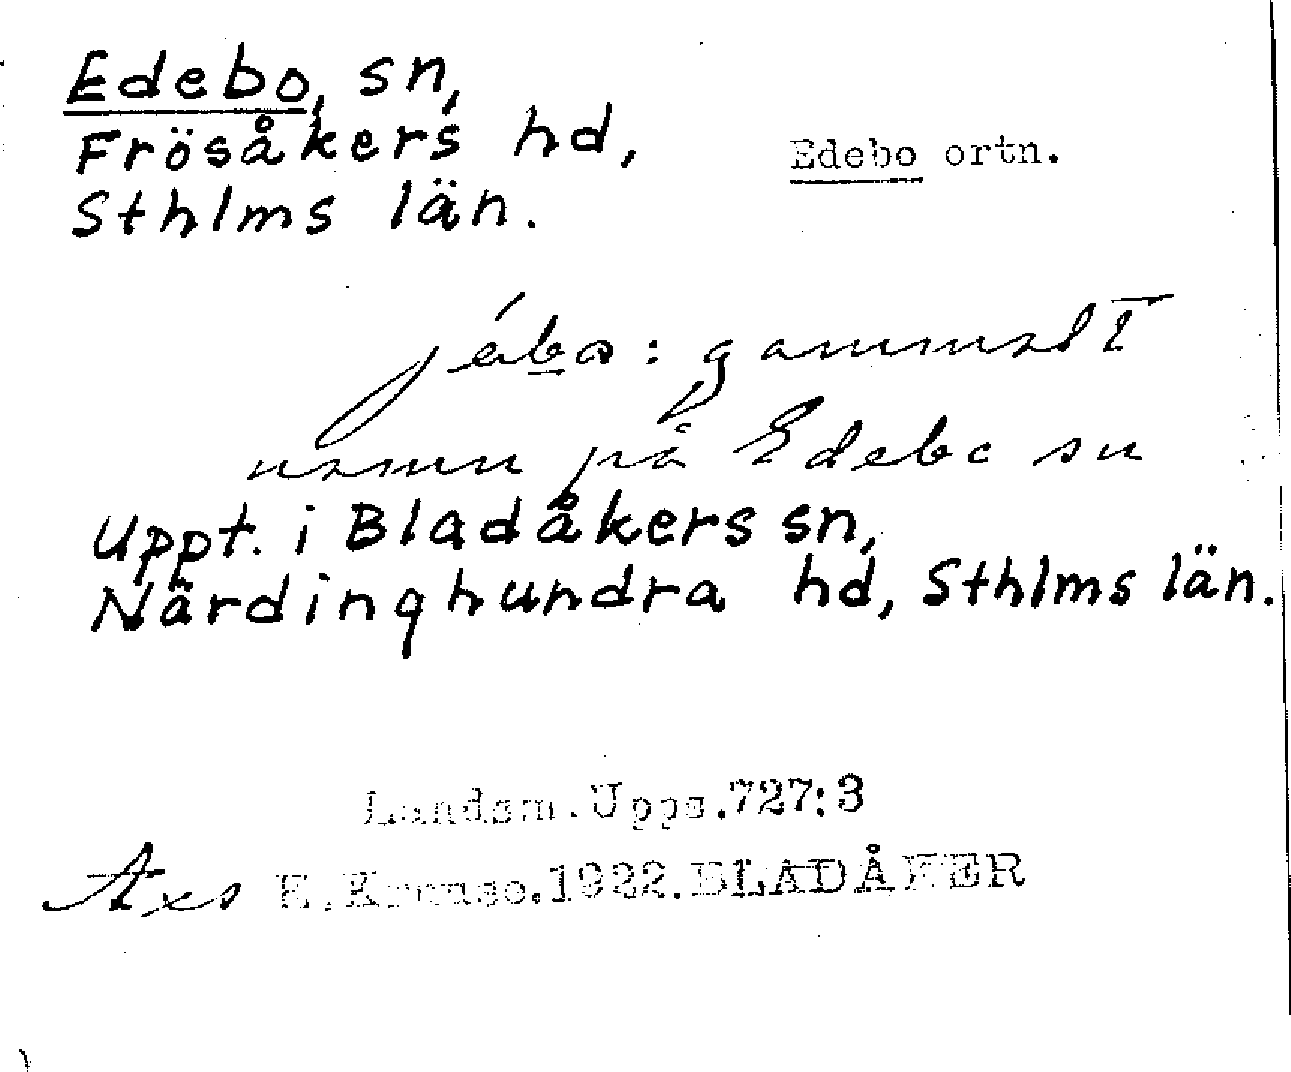 Edebo, sn,
Frösåkers hd,
Sthlms län.
Edebo ortn.
jébo: gammalt
namn på Edebo sn
Uppt. i Bladåkers sn,
Närdinghundra hd, Sthlms län.
Landsm. Upps. 727:3
E. Kruuse. 1922. BLADÅKER